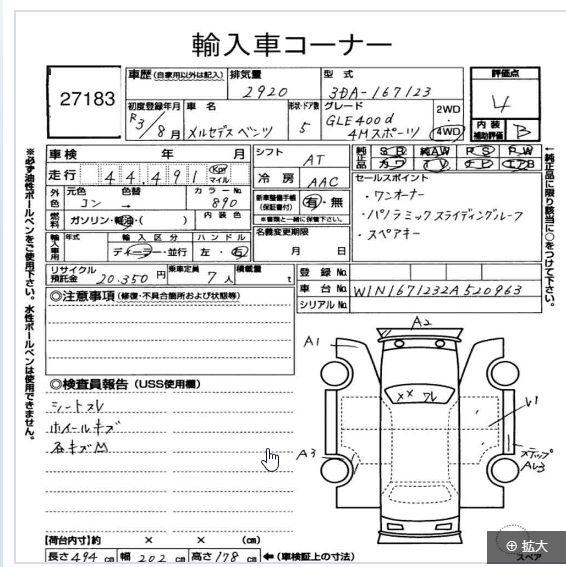 輸入車コーナー
27183
車歴(自家用以外は記入) 排気量 型式
2920 3DA-167123
初度登録年月 車名 形状・ドア数 グレード 2WD
R3/8月 メルセデスベンツ 5 GLE400d 4WD
4Mスポーツ
評価点
4
内装補助評価 B
車検 年 月
シフト AT
純正品 SR AW PS PW
カワ TV ナビ エアB
走行 44,491 Km マイル
冷房 AAC
セールスポイント
・ワンオーナー
・パノラミックスライディングルーフ
・スペアキー
外色 元色 色替 カラーNo.
コン → 890
新車整備手帳(保証書付) 有・無
※書類と一緒に保管下さい。
燃料 ガソリン・軽油・( ) 内装色
輸入車用 年式 輸入区分 ハンドル
ディーラー・並行 左・右
名義変更期限
月 日
リサイクル預託金 20,350円 乗車定員 7人 積載量 t
登録No.
車台No. W1N1671232A520963
シリアルNo.
◎注意事項(修復・不具合箇所および状態等)
◎検査員報告(USS使用欄)
シートスレ
ホイールキズ
各キズM
A1
A2
××ワレ
V1
A3
ステップ
AU3
【荷台内寸】約 × × (cm)
長さ494cm 幅202cm 高さ178cm ←(車検証上の寸法)
スペア
拡大
※必ず油性ボールペンをご使用下さい。水性ボールペンは使用できません。
←純正品に限り該当に○をつけて下さい。